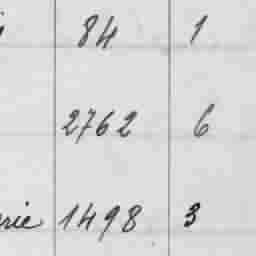 84 1
2762 6
1498 3